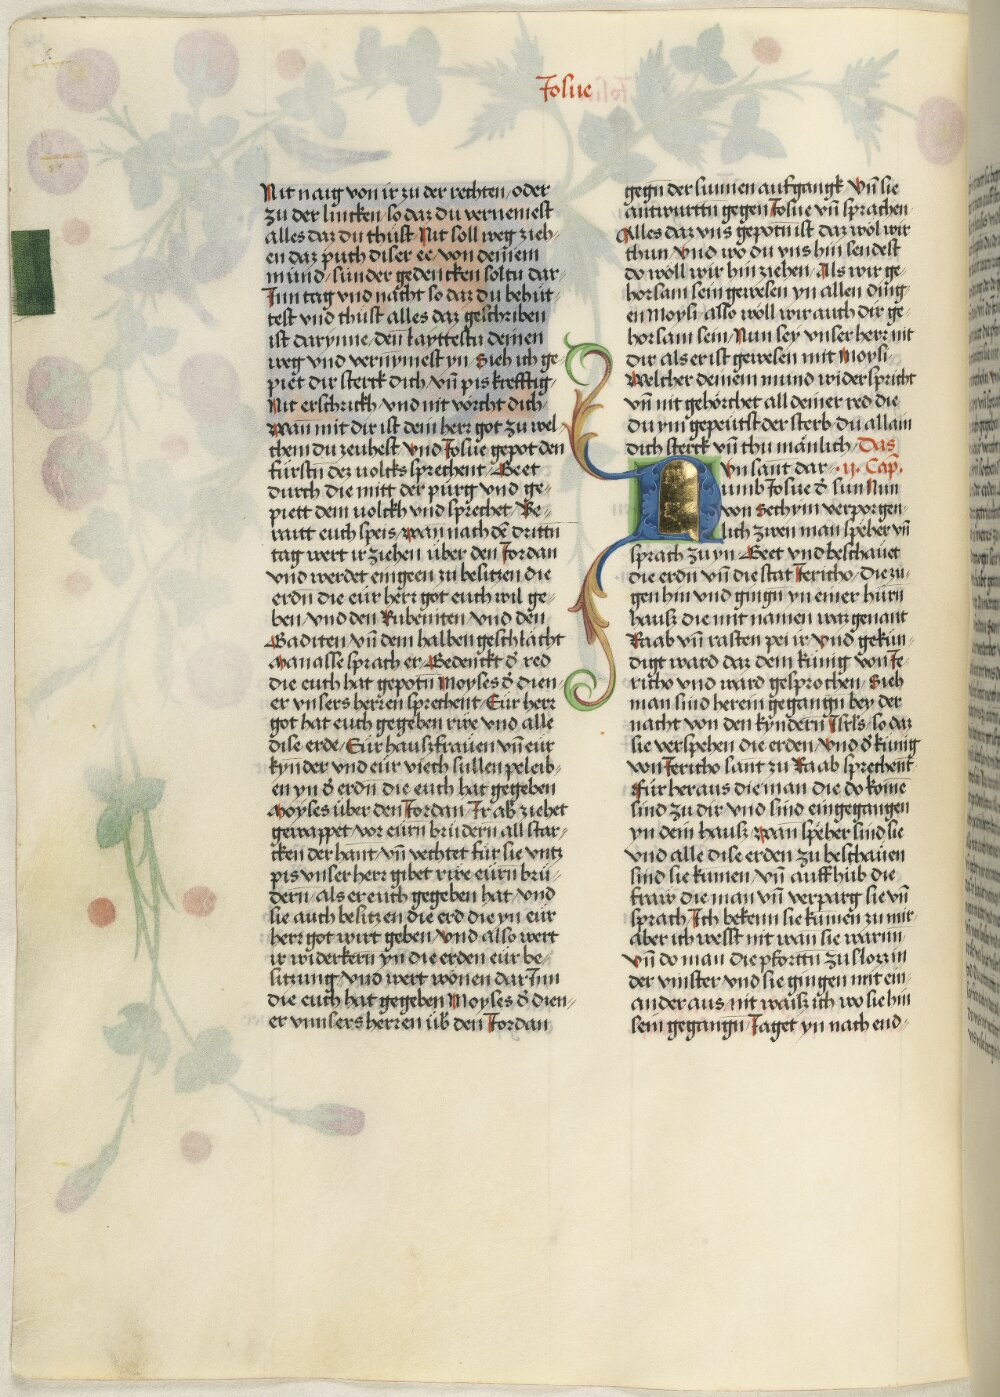 Josue
Nit naig von ir zu der rechten / oder
zu der lincken / so daz du vernemest
alles daz du thust / Nit soll weg zieh-
en daz puch diser ee / von deinem
mund / sunder gedencken soltu dar-
Inn tag vnd nacht so daz du behüt-
test vnd thust alles daz geschriben
ist darynne / den kayttestu deinen
weg vnd vernymest yn / Sieh ich ge-
piet dir sterck dich / vn̄ pis krefftig
Nit erschrickh / vnd nit vörcht dich /
Wan mit dir ist dein herr got zu wel
chem du zeuhest / Vnd Josue gepot den
fürstn̄ dez volcks sprechent / Geet
durch die mitt der pürg vnd ge-
piett dem volckh vnd sprechet / Be-
raitt euch speis / wan nach dē drittn
tag wert ir ziehen über den Jordan
vnd werdet eingeen zu besitzen die
erdn die eür herr got euch wil ge-
ben / vnd den Rubeniten vnd den
Gaditen vn̄ dem halben geschlächt
Manasse sprach er / Gedenckt d̄ red
die euch hat gepotn̄ Moyses d̄ dien
er vnsers herren sprechent / Eür herr
got hat euch gegeben rwe vnd alle
dise erde / Eür hauszfrauen vn̄ eür
kynder vnd eür viech sullen peleib-
en yn d̄ erdn die euch hat gegeben
Moyses über den Jordan / Ir ab ziehet
gewappet vor eürn brüdern all star-
cken der hant / vn̄ vechtet für sie vntz
pis vnser herr gibet rwe eürn brü-
dern / als er euch gegeben hat / vnd
sie auch besitzen die erd die yn eür
herr got wirt geben / Vnd also wert
ir widerkern yn die erden eür be-
sitzung / vnd wert wonen dar Inn
die euch hat gegeben Moyses d̄ dien-
er vnnsers herren üb̄ den Jordan
gegn der sunnen aufgangk / Vn̄ sie
antwurttn gegen Josue vn̄ sprachen
Alles daz vns gepotn ist daz wöl wir
thun / Vnd wo du vns hin sendest
do wöll wir hin ziehen / Als wir ge-
horsam sein gewesen yn allen ding-
en Moysi / also wöll wir auch dir ge-
horsam sein / Nun sey vnser herr mit
dir als er ist gewesen mit Moysi
Welcher deinem mund widerspricht
vn̄ nit gehorchet all deiner red die
du ym gepeütst der sterb / du allain
dich sterck vn̄ thu mänlich / Das
Vn sant dar · ij · Cap̄.
umb Josue d̄ sun Nun
von Sethym verporgen-
lich zwen man speher vn̄
sprach zu yn / Geet vnd beschauet
die erdn vn̄ die stat Jericho / die zü-
gen hin vnd gingn yn einer hürn
hausz die mit namen war genant
Raab vn̄ rasten pei ir / vnd gekün-
digt ward daz dem künig von Je-
richo vnd ward gesprochen / Sieh
man sind herein gegangn bey der
nacht von den kyndern Isrls / so daz
sie verspehen die erden / Vnd d̄ künig
von Jericho sant zu Raab sprechent
Für heraus die man die do kome
sind zu dir / vnd sind eingegangen
yn dein hausz / wan speher sind sie
vnd alle dise erden zu beschauen
sind sie kumen / vn̄ auff hüb die
fraw die man vn̄ verparg sie vn̄
sprach / Ich bekenn sie kumen zu mir
Aber ich wesst nit wan sie warnn
Vn̄ do man die pforttn zu slozz in
der vinster vnd sie gingen mit ein-
ander aus / nit waisz ich wo sie hin
sein gegangn / Jaget yn nach end-